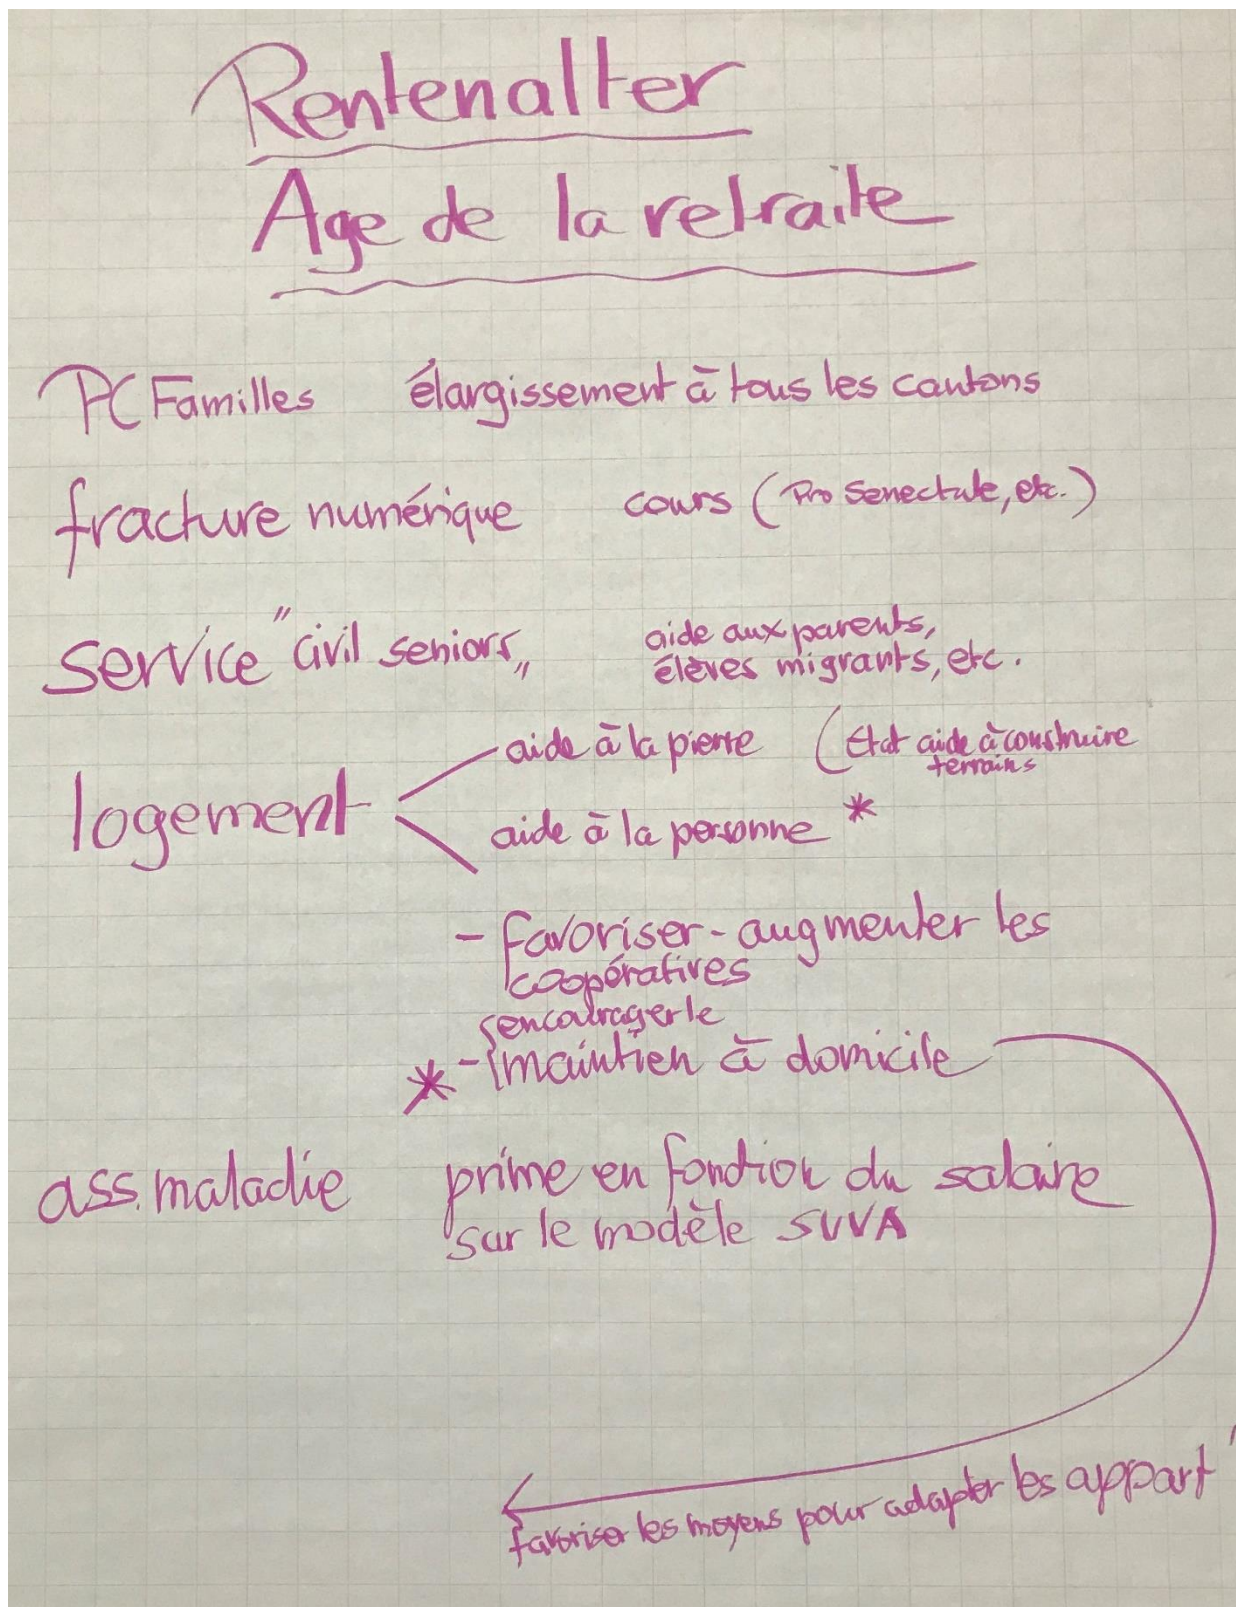 Rentenalter
Age de la retraite
PC Familles élargissement à tous les cantons
fracture numérique cours (Pro Senectute, etc.)
service "civil seniors„ aide aux parents,
élèves migrants, etc.
aide à la pierre (Etat aide à construire
terrains
logement
aide à la personne *
- favoriser - augmenter les
coopératives
encourager le
* - maintien à domicile
ass. maladie prime en fonction du salaire
sur le modèle SUVA
favoriser les moyens pour adapter les appart'